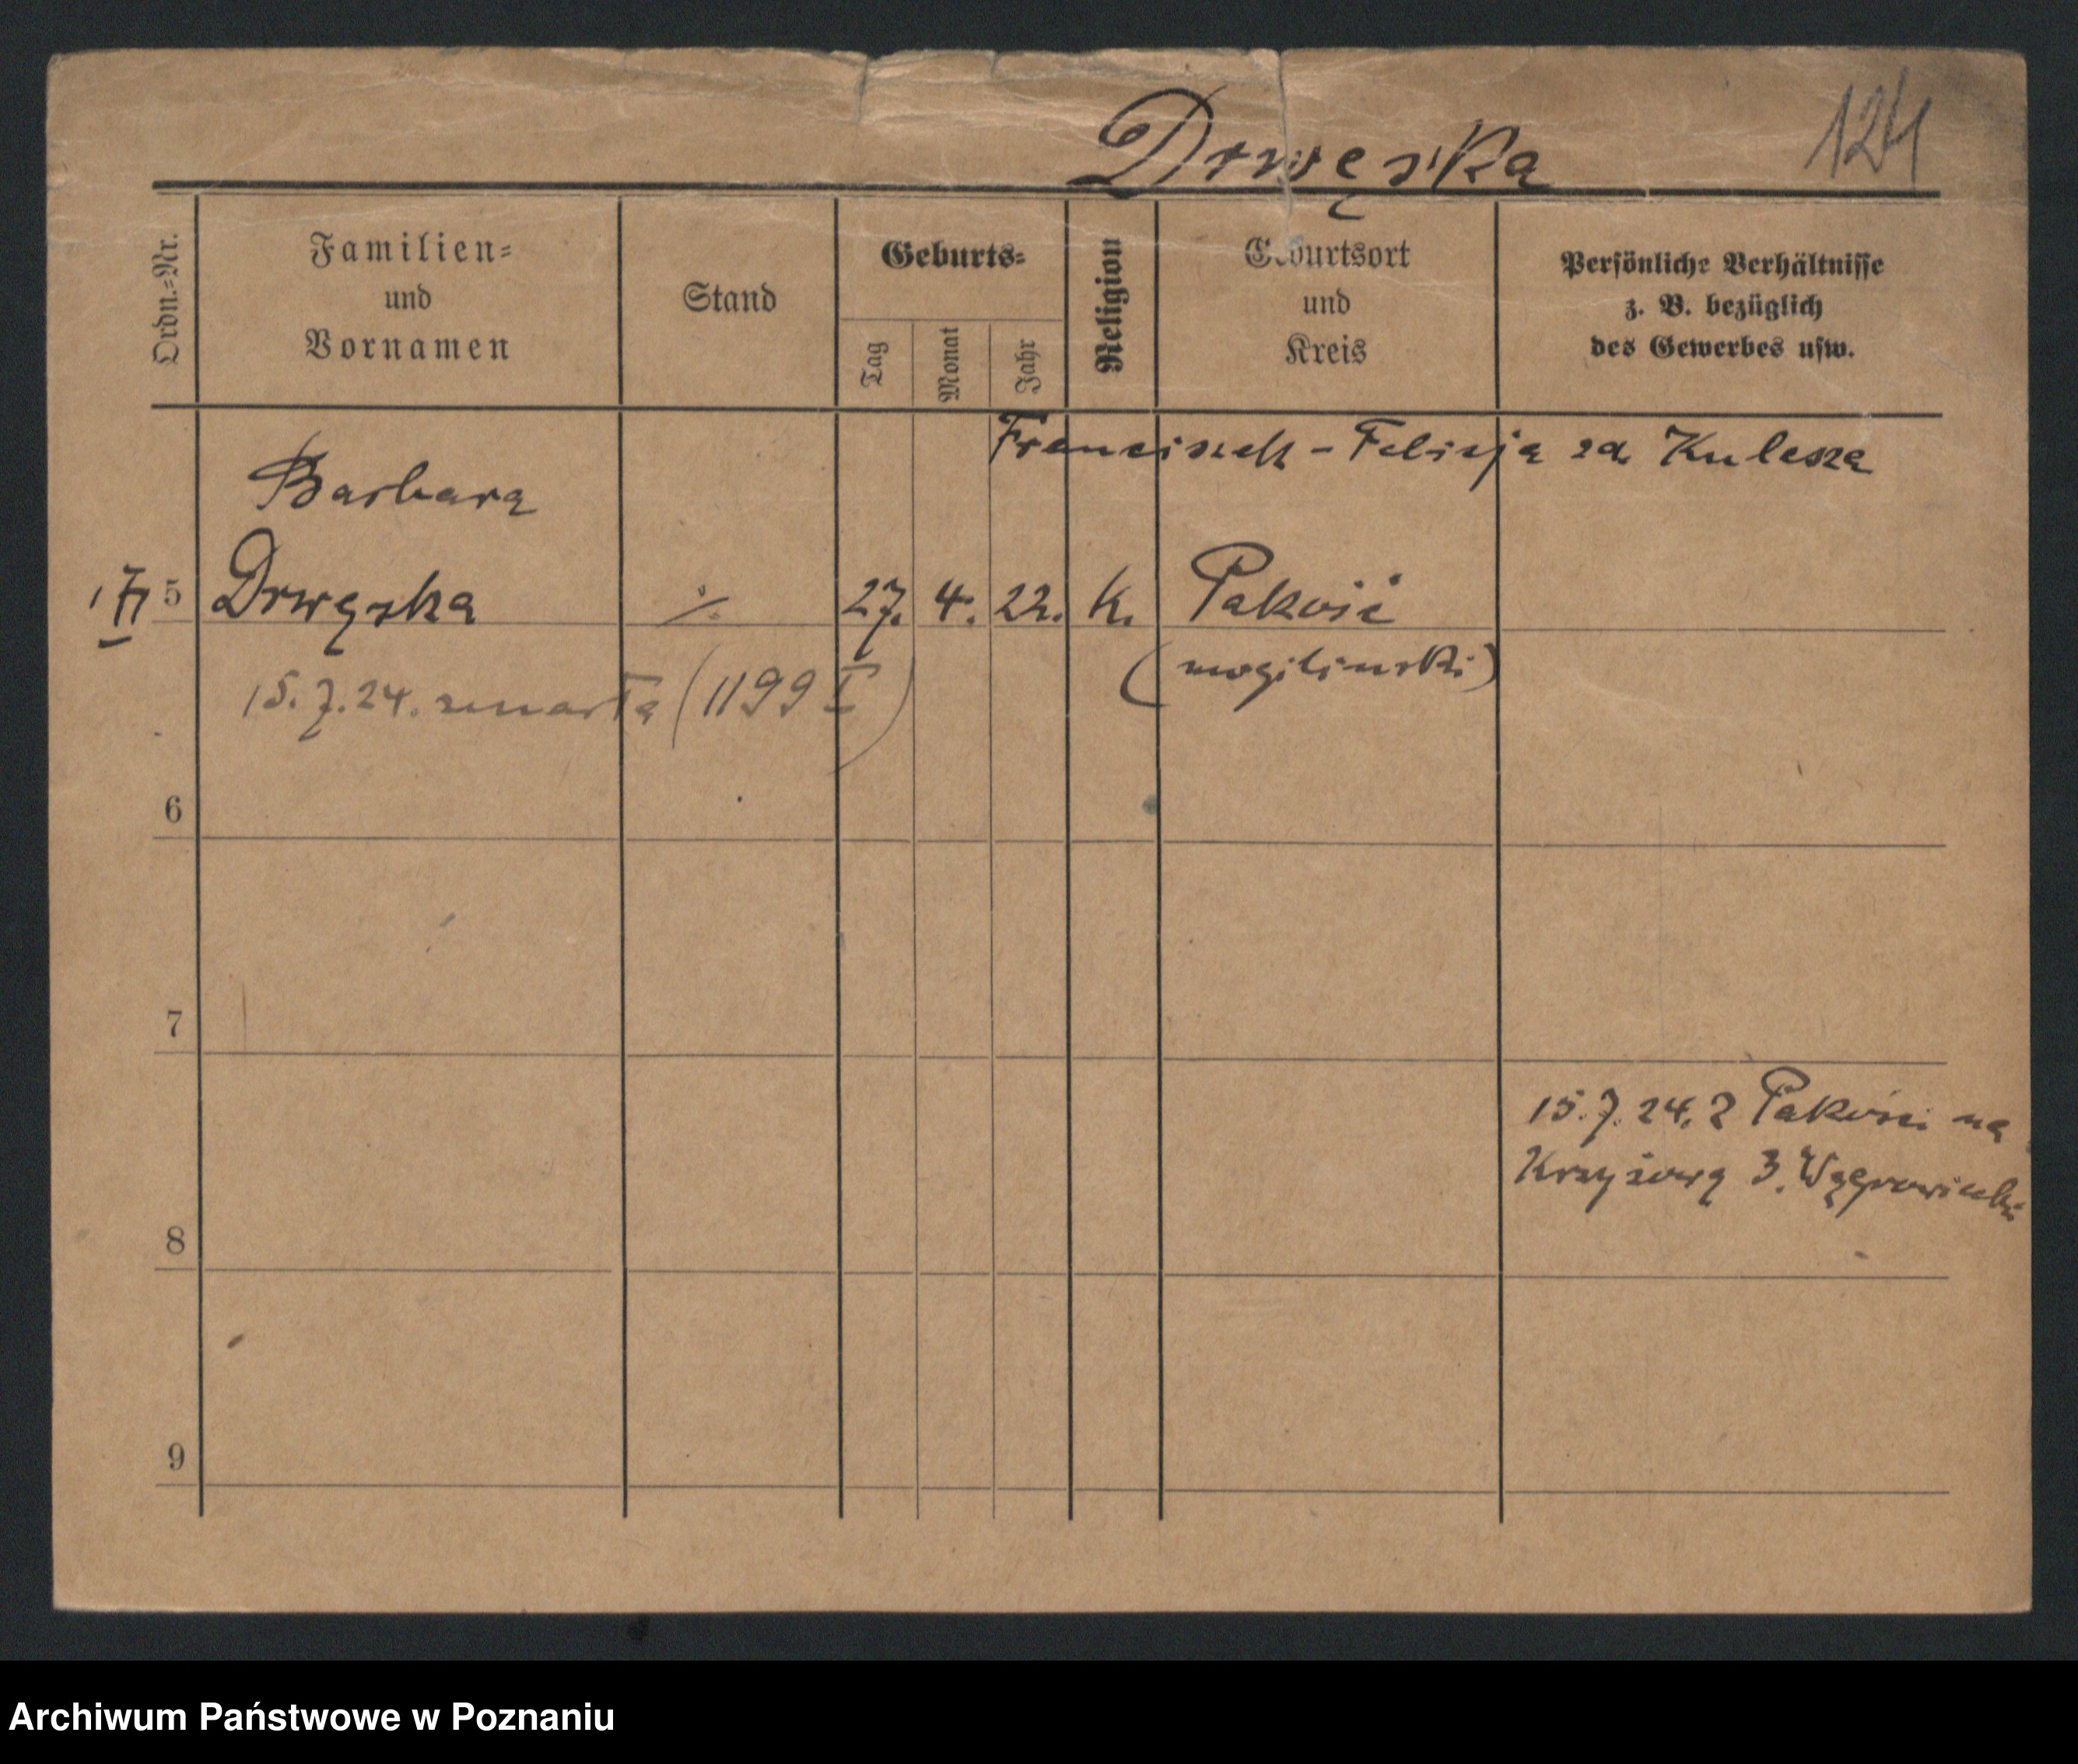 Drwęska
124
Ordn.-Nr.
Familien-
und
Vornamen
Stand
Geburts-
Tag
Monat
Jahr
Religion
Geburtsort
und
Kreis
Persönliche Verhältnisse
z. B. bezüglich
des Gewerbes usw.
Franciszek - Felicja zd. Kulesza
Barbara
5 Drwęska ./. 27. 4. 22. k. Pakość
(mogiliński)
15.7.24. zmarła (1199 I)
6
7
15.7.24. z Pakości na
Krzyżową 3.
8
9
Archiwum Państwowe w Poznaniu